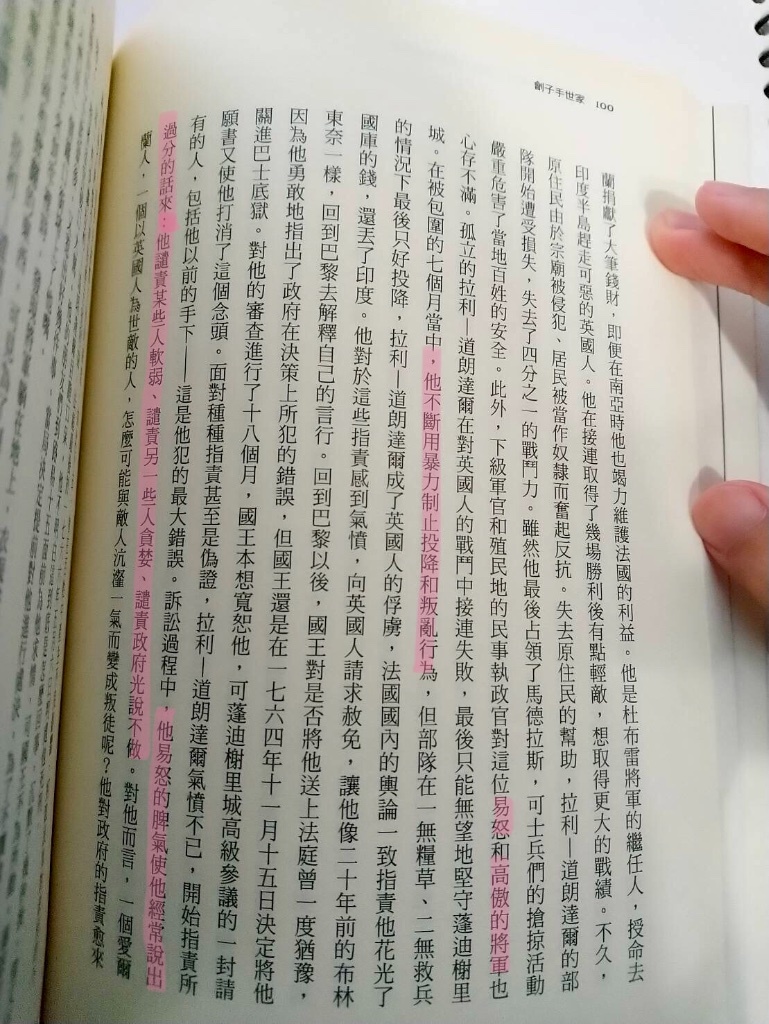 劊子手世家 100
蘭捐獻了大筆錢財，即便在南亞時他也竭力維護法國的利益。他是杜布雷將軍的繼任人，授命去
印度半島趕走可惡的英國人。他在接連取得了幾場勝利後有點輕敵，想取得更大的戰績。不久，
原住民由於宗廟被侵犯、居民被當作奴隸而奮起反抗。失去原住民的幫助，拉利—道朗達爾的部
隊開始遭受損失，失去了四分之一的戰鬥力。雖然他最後占領了馬德拉斯，可士兵們的搶掠活動
嚴重危害了當地百姓的安全。此外，下級軍官和殖民地的民事執政官對這位易怒和高傲的將軍也
心存不滿。孤立的拉利—道朗達爾在對英國人的戰鬥中接連失敗，最後只能無望地堅守蓬迪榭里
城。在被包圍的七個月當中，他不斷用暴力制止投降和叛亂行為，但部隊在一無糧草、二無救兵
的情況下最後只好投降，拉利—道朗達爾成了英國人的俘虜，法國國內的輿論一致指責他花光了
國庫的錢，還丟了印度。他對於這些指責感到氣憤，向英國人請求赦免，讓他像二十年前的布林
東奈一樣，回到巴黎去解釋自己的言行。回到巴黎以後，國王對是否將他送上法庭曾一度猶豫，
因為他勇敢地指出了政府在決策上所犯的錯誤，但國王還是在一七六四年十一月十五日決定將他
關進巴士底獄。對他的審查進行了十八個月，國王本想寬恕他，可蓬迪榭里城高級參議的一封請
願書又使他打消了這個念頭。面對種種指責甚至是偽證，拉利—道朗達爾氣憤不已，開始指責所
有的人，包括他以前的手下——這是他犯的最大錯誤。訴訟過程中，他易怒的脾氣使他經常說出
過分的話來：他譴責某些人軟弱、譴責另一些人貪婪、譴責政府光說不做。對他而言，一個愛爾
蘭人，一個以英國人為世敵的人，怎麼可能與敵人沆瀣一氣而變成叛徒呢？他對政府的指責愈來